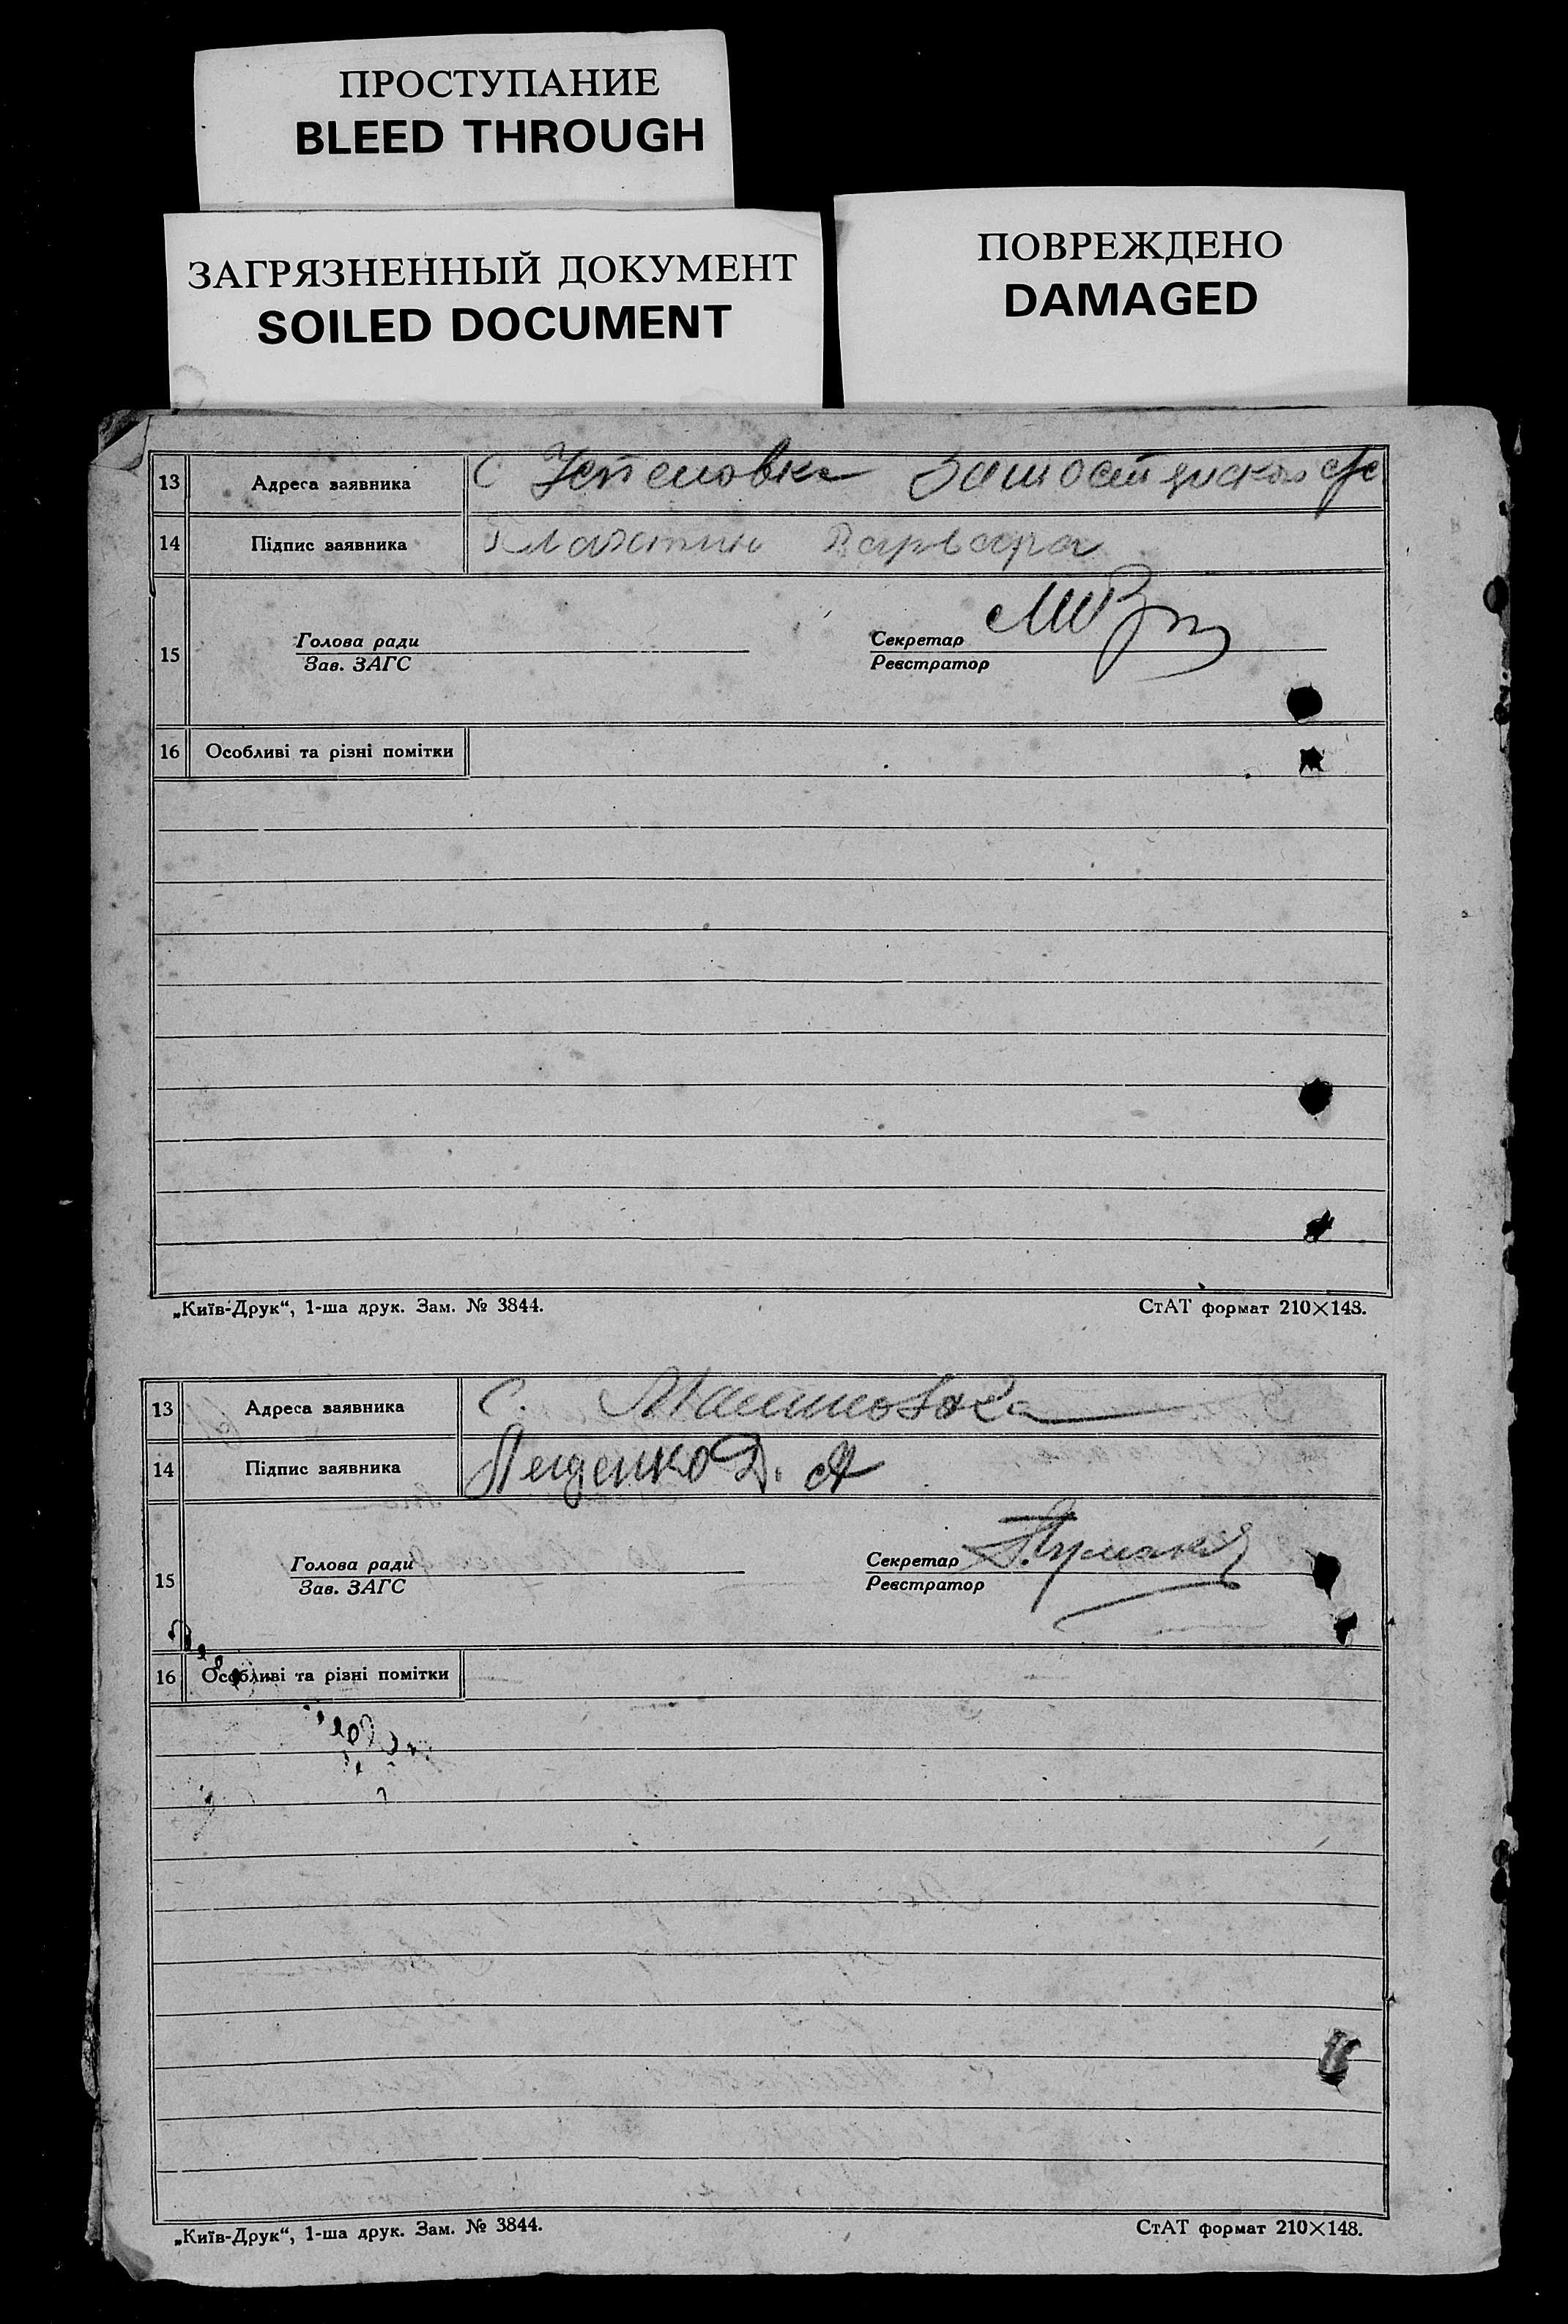 ПРОСТУПАНИЕ
BLEED THROUGH
ЗАГРЯЗНЕННЫЙ ДОКУМЕНТ
SOILED DOCUMENT
ПОВРЕЖДЕНО
DAMAGED
13 Адреса заявника С
14 Підпис заявника Варвара
15 Голова ради Секретар
Зав. ЗАГС Реєстратор
16 Особливі та різні помітки
„Київ-Друк“, 1-ша друк. Зам. № 3844. СтАТ формат 210×148.
13 Адреса заявника С. Малиновка
14 Підпис заявника Лещенко Д. А
15 Голова ради Секретар
Зав. ЗАГС Реєстратор
16 Особливі та різні помітки
„Київ-Друк“, 1-ша друк. Зам. № 3844. СтАТ формат 210×148.